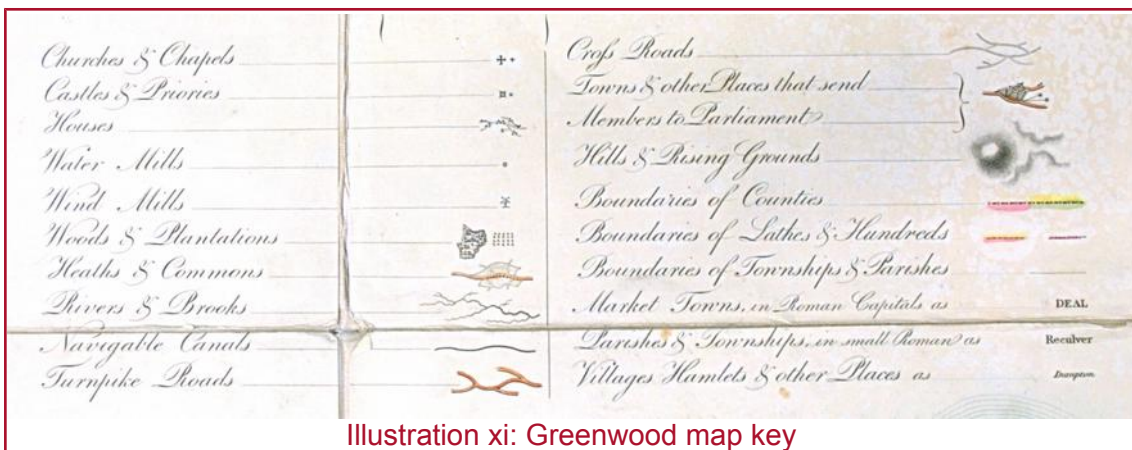 Churches & Chapels
Castles & Priories
Houses
Water Mills
Wind Mills
Woods & Plantations
Heaths & Commons
Rivers & Brooks
Navigable Canals
Turnpike Roads
Croſs Roads
Towns & other Places that send
Members to Parliament
Hills & Rising Grounds
Boundaries of Counties
Boundaries of Lathes & Hundreds
Boundaries of Townships & Parishes
Market Towns, in Roman Capitals as DEAL
Parishes & Townships, in small Roman as Reculver
Villages Hamlets & other Places as
Illustration xi: Greenwood map key